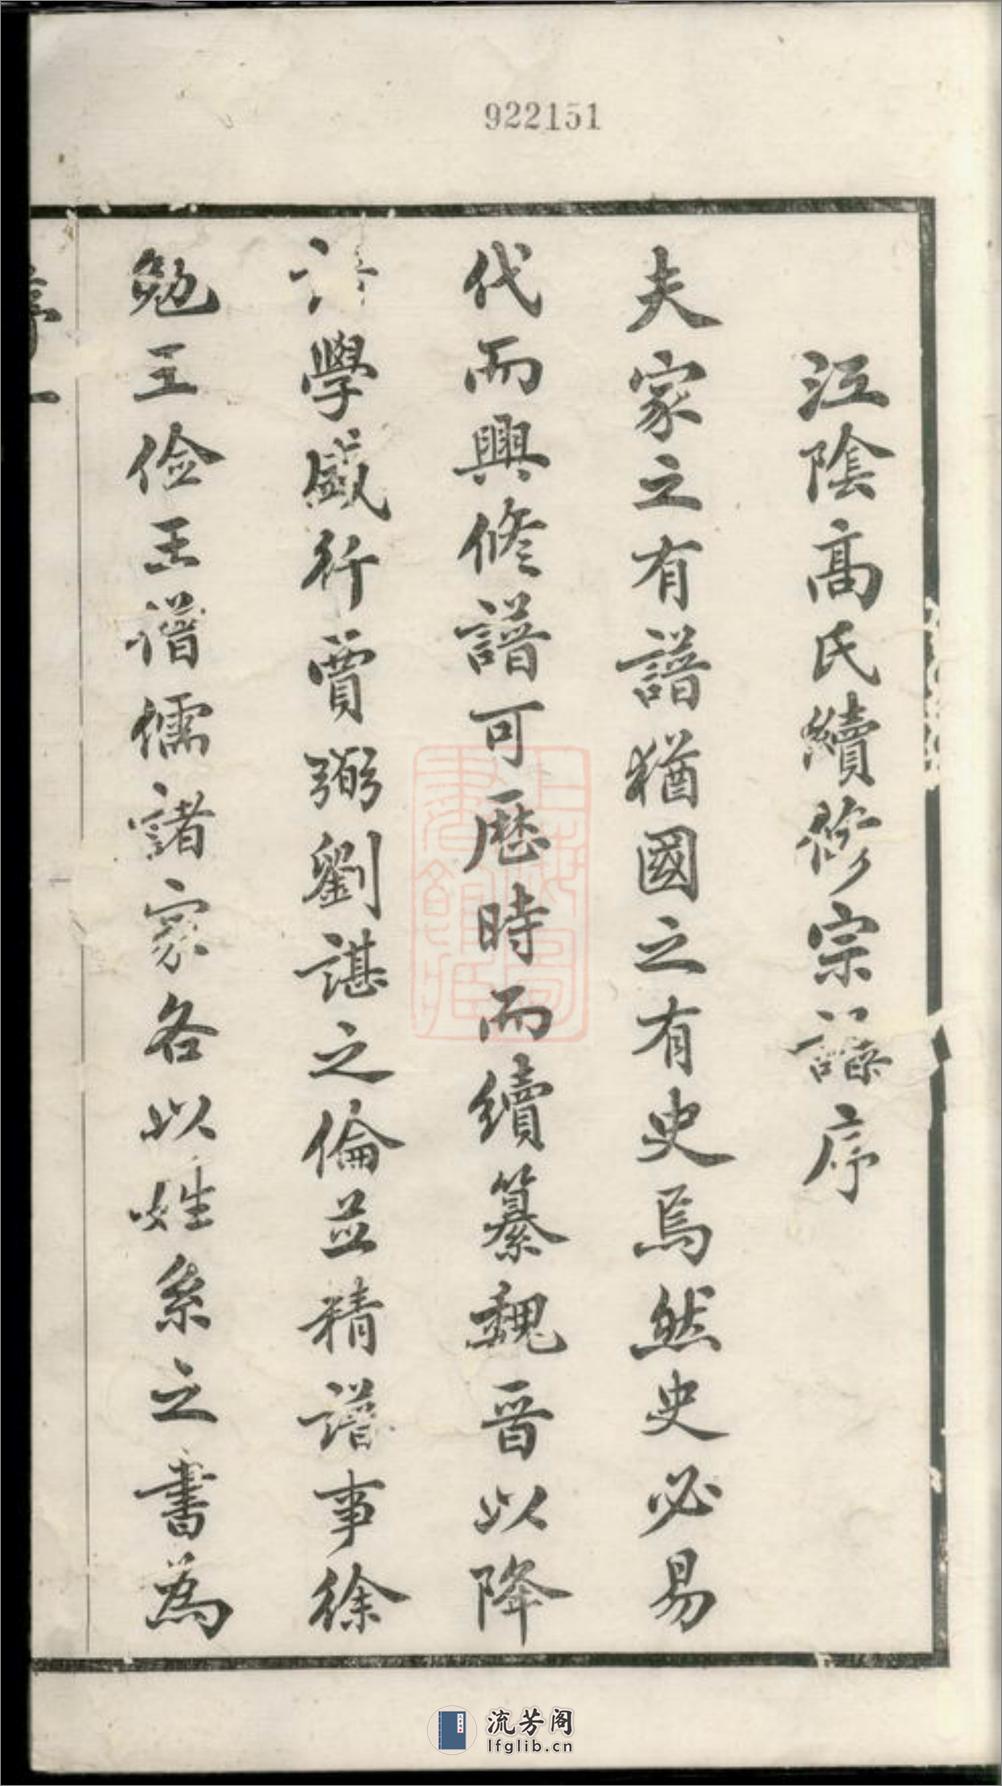 922151
江陰高氏續修宗譜序
夫家之有譜猶國之有史焉然史必易
代而興修譜可歷時而續纂魏晉以降
譜學盛行賈弼劉諶之倫並精譜事徐
勉王儉王僧儒諸家各以姓系之書為
序一
上海圖書館藏
流芳阁
lfglib.cn